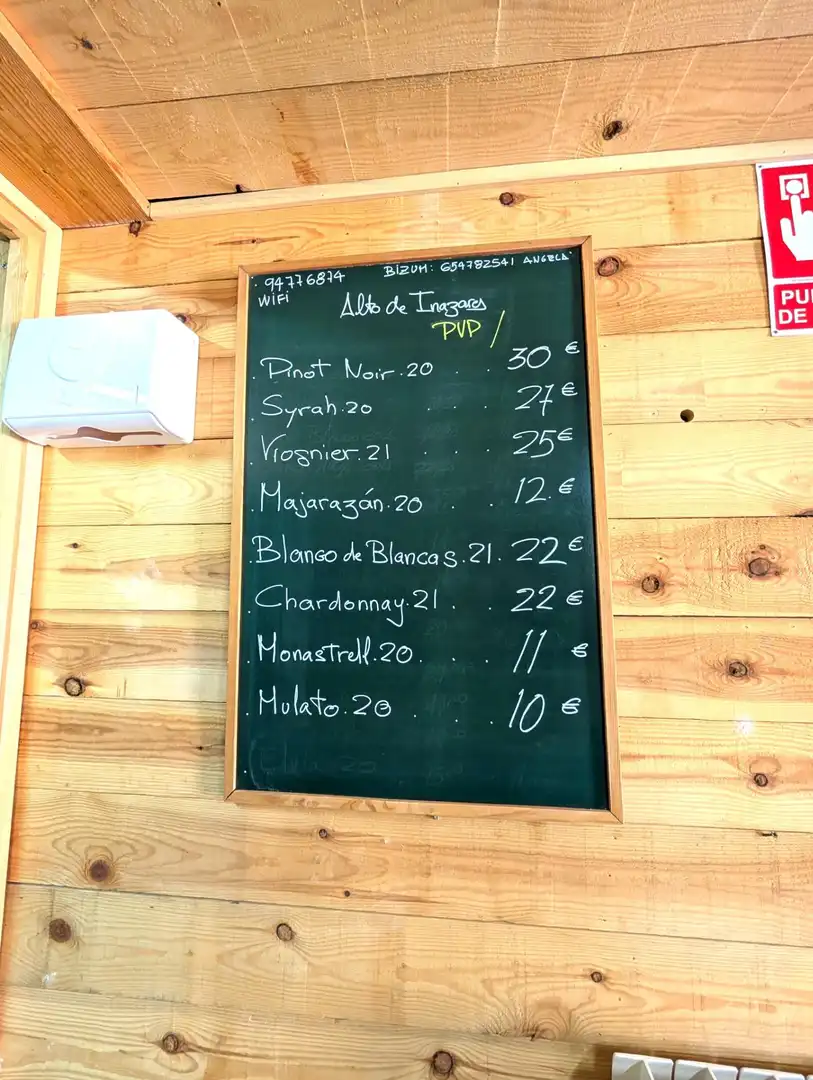 . 94776874 BIZUM: 654782541 ANGELA
WiFi
Alto de Inazares
PVP /
. Pinot Noir.20 . . 30 €
. Syrah.20 . . . 27 €
. Viognier.21 . . . 25 €
. Majarazán.20 . . 12 €
. Blanco de Blancas.21. 22 €
. Chardonnay.21 . . 22 €
. Monastrell.20 . . . 11 €
. Mulato.20 . . . 10 €
PU
DE